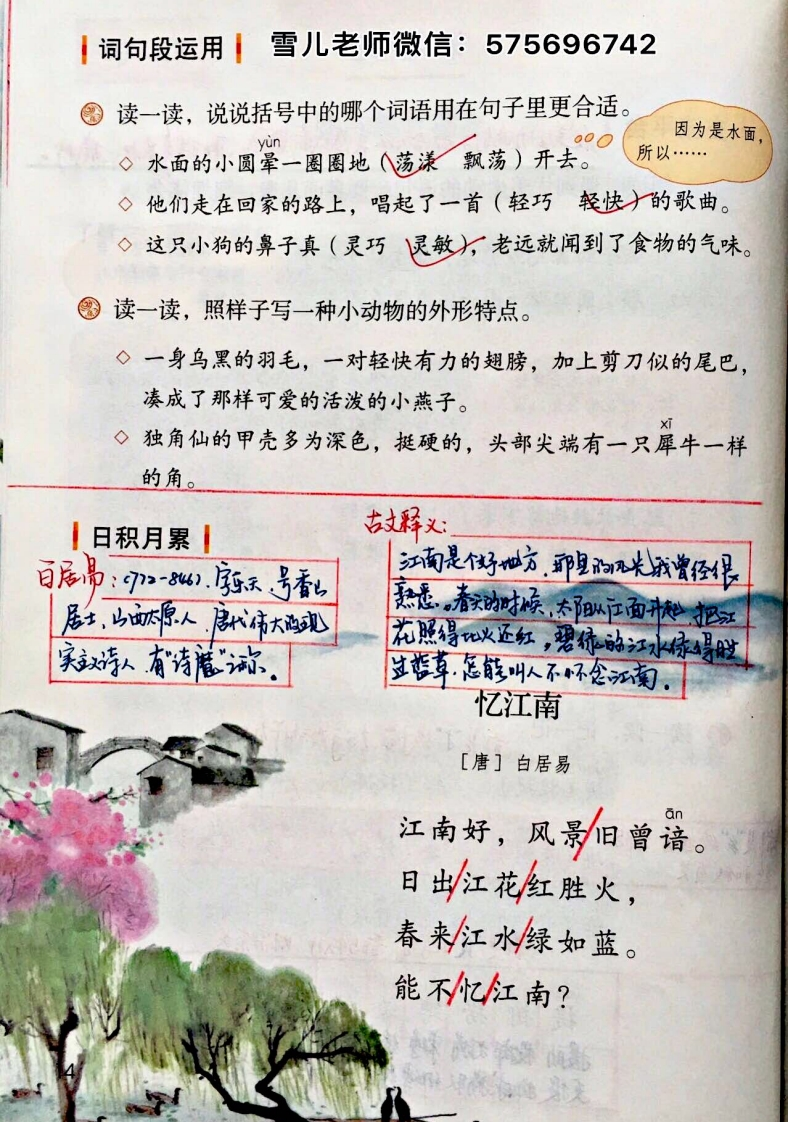 词句段运用
雪儿老师微信：575696742
读一读，说说括号中的哪个词语用在句子里更合适。
因为是水面，
所以……
yùn
水面的小圆晕一圈圈地（荡漾 飘荡）开去。
他们走在回家的路上，唱起了一首（轻巧 轻快）的歌曲。
这只小狗的鼻子真（灵巧 灵敏），老远就闻到了食物的气味。
读一读，照样子写一种小动物的外形特点。
一身乌黑的羽毛，一对轻快有力的翅膀，加上剪刀似的尾巴，
凑成了那样可爱的活泼的小燕子。
xī
独角仙的甲壳多为深色，挺硬的，头部尖端有一只犀牛一样
的角。
日积月累
白居易：(772-846)，字乐天，号香山
居士，山西太原人，唐代伟大的现
实主义诗人，有"诗魔"之称。
古文释义：
江南是个好地方，那里的风光我曾经很
熟悉。春天的时候，太阳从江面升起，把江
花照得比火还红，碧绿的江水绿得胜
过蓝草，怎能叫人不怀念江南。
忆江南
［唐］白居易
ān
江南好，风景旧曾谙。
日出江花红胜火，
春来江水绿如蓝。
能不忆江南？
4